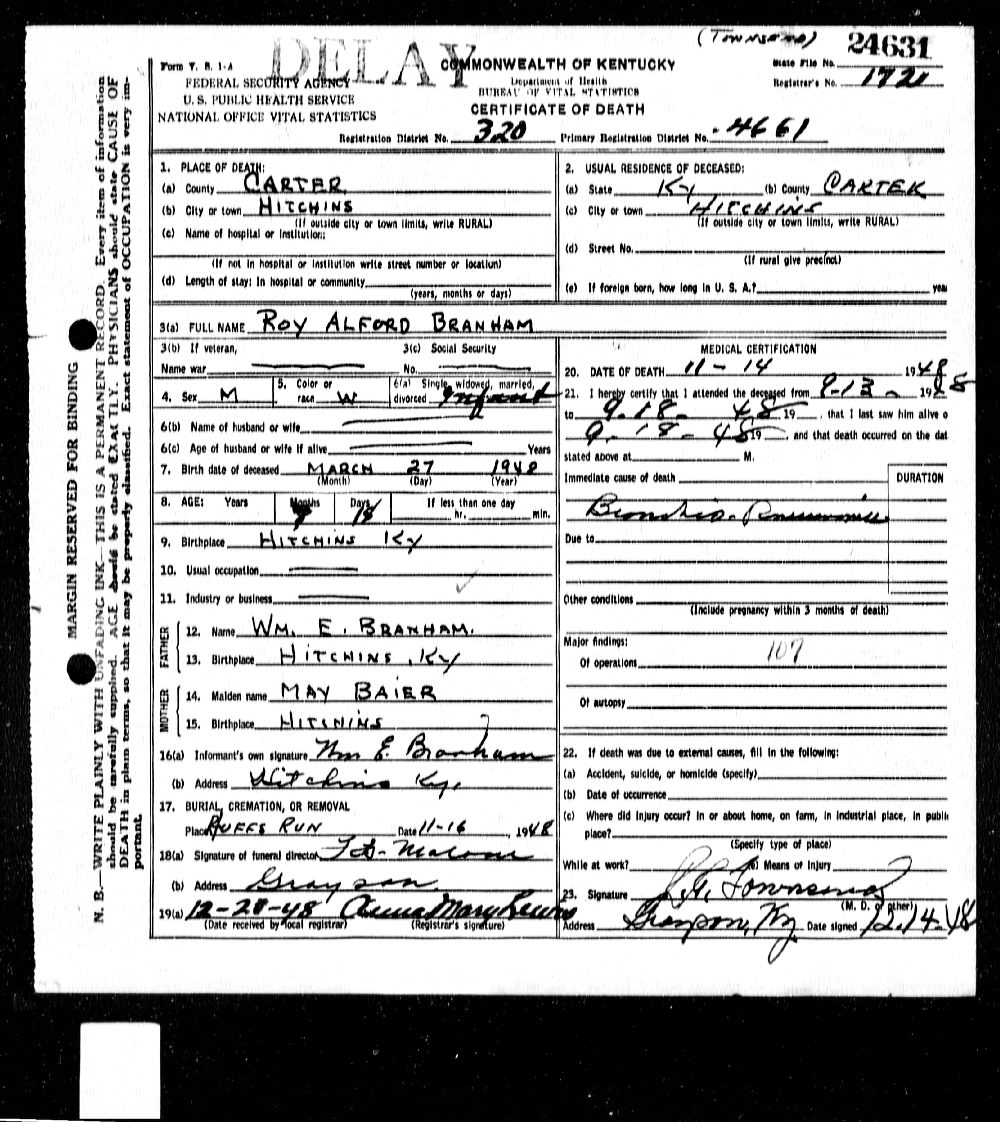 (TOWNSEND) 24631
DELAY
Form V. S. 1-A COMMONWEALTH OF KENTUCKY State File No.
FEDERAL SECURITY AGENCY Department of Health Registrar's No. 1721
U. S. PUBLIC HEALTH SERVICE BUREAU OF VITAL STATISTICS
NATIONAL OFFICE VITAL STATISTICS CERTIFICATE OF DEATH
Registration District No. 320 Primary Registration District No. 4661
MARGIN RESERVED FOR BINDING
N. B.—WRITE PLAINLY WITH UNFADING INK—THIS IS A PERMANENT RECORD. Every item of information
should be carefully supplied. AGE should be stated EXACTLY. PHYSICIANS should state CAUSE OF
DEATH in plain terms, so that it may be properly classified. Exact statement of OCCUPATION is very im-
portant.
1. PLACE OF DEATH:
(a) County CARTER
(b) City or town HITCHINS
(If outside city or town limits, write RURAL)
(c) Name of hospital or institution:
(If not in hospital or institution write street number or location)
(d) Length of stay: In hospital or community
(years, months or days)
2. USUAL RESIDENCE OF DECEASED:
(a) State Ky (b) County CARTER
(c) City or town HITCHINS
(If outside city or town limits, write RURAL)
(d) Street No.
(If rural give precinct)
(e) If foreign born, how long in U. S. A.? yea
3(a) FULL NAME ROY ALFORD BRANHAM
3(b) If veteran, 3(c) Social Security
Name war No.
4. Sex M 5. Color or race W 6(a) Single, widowed, married, divorced Infant
6(b) Name of husband or wife
6(c) Age of husband or wife if alive Years
7. Birth date of deceased MARCH 27 1948
(Month) (Day) (Year)
8. AGE: Years Months Days 18 If less than one day
hr. min.
9. Birthplace HITCHINS Ky
10. Usual occupation
11. Industry or business
FATHER
12. Name WM. E. BRANHAM.
13. Birthplace HITCHINS, Ky
MOTHER
14. Maiden name MAY BAIER
15. Birthplace HITCHINS
16(a) Informant's own signature Wm E. Branham
(b) Address Hitchins Ky.
17. BURIAL, CREMATION, OR REMOVAL
Place RUFFS RUN Date 11-16, 1948
18(a) Signature of funeral director F. D. Malone
(b) Address Grayson
19(a) 12-28-48 Anna Mary Lewis
(Date received by local registrar) (Registrar's signature)
MEDICAL CERTIFICATION
20. DATE OF DEATH 11-14 1948
21. I hereby certify that I attended the deceased from 9-13- 1948
to 9-18-48 19, that I last saw him alive o
9-18-48 19, and that death occurred on the dat
stated above at M.
Immediate cause of death DURATION
Broncho-Pneumonia
Due to
Other conditions
(Include pregnancy within 3 months of death)
Major findings:
Of operations 107
Of autopsy
22. If death was due to external causes, fill in the following:
(a) Accident, suicide, or homicide (specify)
(b) Date of occurrence
(c) Where did injury occur? In or about home, on farm, in industrial place, in public
place?
(Specify type of place)
While at work? (e) Means of Injury
23. Signature Townsend
(M. D. or other)
Address Grayson, Ky Date signed 12-14-48